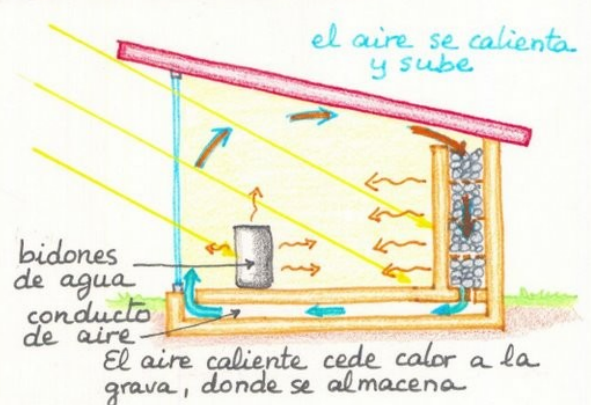 el aire se calienta
y sube
bidones
de agua
conducto
de aire
El aire caliente cede calor a la
grava, donde se almacena